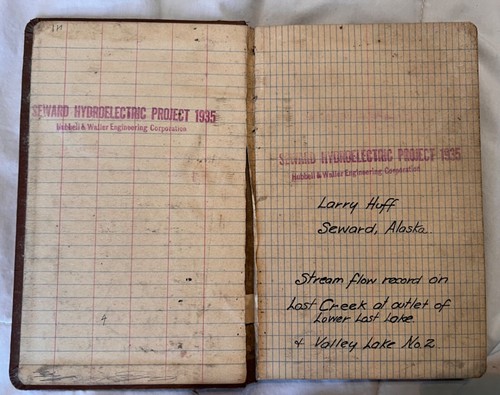 SEWARD HYDROELECTRIC PROJECT 1935
Hubbell & Waller Engineering Corporation
SEWARD HYDROELECTRIC PROJECT 1935
Hubbell & Waller Engineering Corporation
Larry Huff
Seward, Alaska.
Stream flow record on
Lost Creek at outlet of
Lower Lost Lake.
& Valley Lake No. 2